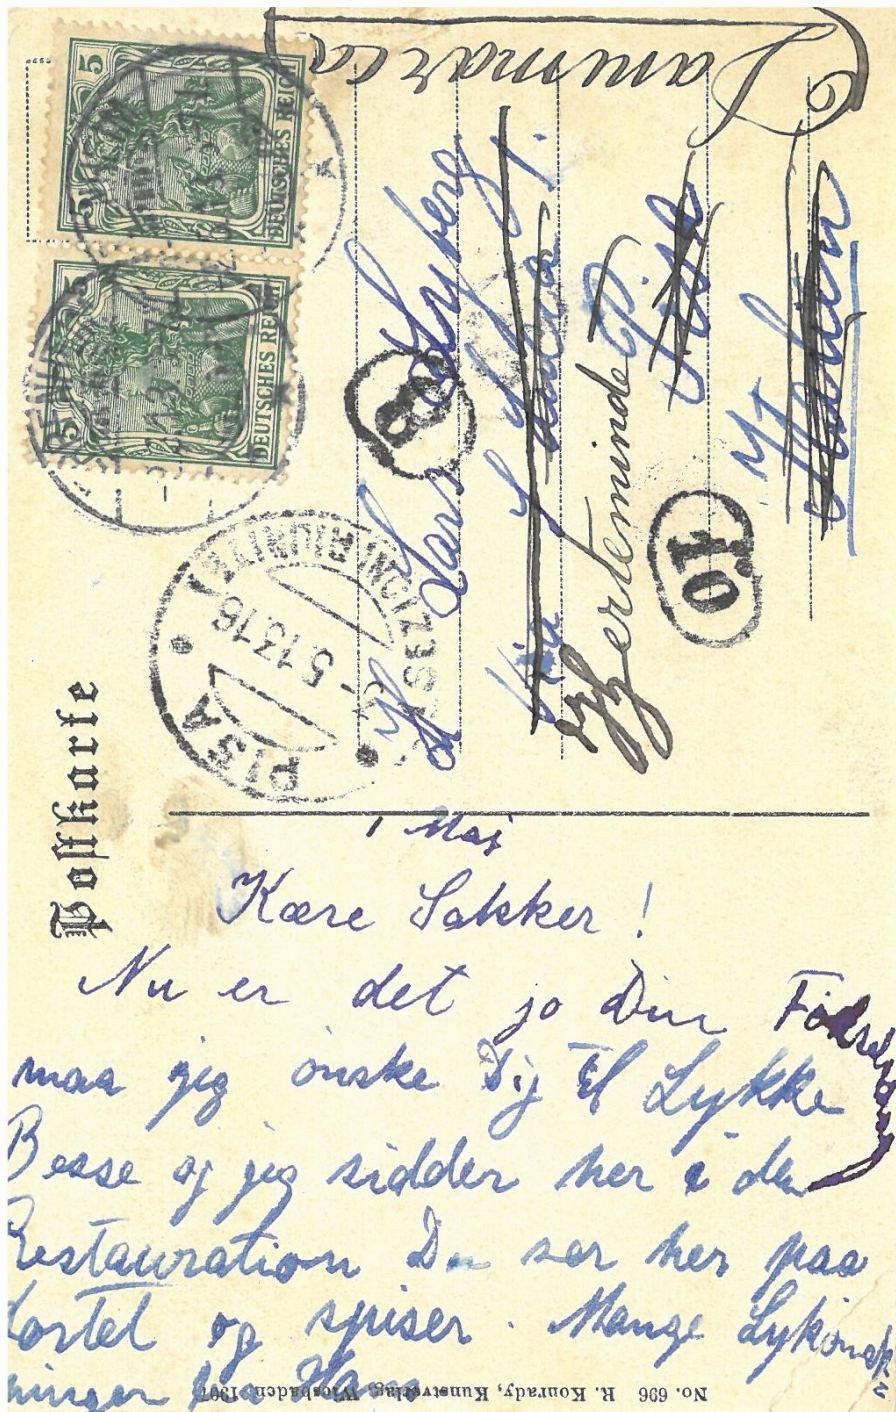 Postkarte
DEUTSCHES REICH
5 5
DEUTSCHES REICH
5 5
PISA
5.13.16
8
10
Hr Lars Syberg
Via S. Maria
Kjerteminde
Pisa
Italien
Danimarca
1 Maj
Kære Sakker!
Nu er det jo Din Fødselsdag
maa jeg ønske Dig til Lykke
Besse og jeg sidder her i den
Restauration Du ser her paa
Kortet og spiser. Mange Lykønsk
ninger fra Hans
No. 696 R. Konrady, Kunstverlag, Wiesbaden 1907